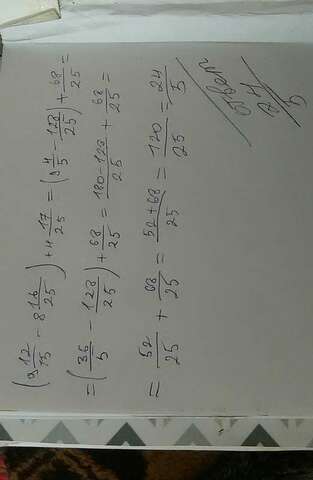 (9 12/15 - 8 16/25) + 4 17/25 = (9 4/5 - 128/25) + 68/25 =
= (36/5 - 128/25) + 68/25 = 180-128/25 + 68/25 =
= 52/25 + 68/25 = 52+68/25 = 120/25 = 24/5
Ответ
24/5